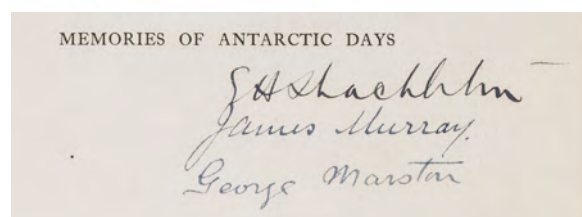 MEMORIES OF ANTARCTIC DAYS
E H Shackleton
James Murray.
George Marston